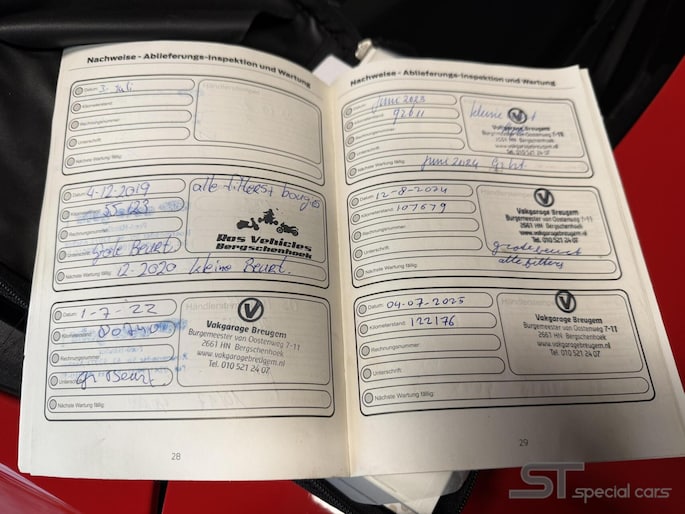 Nachweise - Ablieferungs-Inspektion und Wartung
Datum: 3. Juli
Händlerstempel
Kilometerstand:
Rechnungsnummer:
Unterschrift:
Nächste Wartung fällig:
Datum: 4-12-2019
alle filters + bougies
55123
Ros Vehicles
Bergschenhoek
Grote Beurt.
Nächste Wartung fällig: 12-2020 kleine Beurt.
1-7-22
Händlerstempel
80740
Rechnungsnummer:
gr Beurt,
Nächste Wartung fällig:
Vakgarage Breugem
Burgemeester van Oostenweg 7-11
2661 HN Bergschenhoek
www.vakgaragebreugem.nl
Tel. 010 521 24 07
28
Nachweise - Ablieferungs-Inspektion und Wartung
Datum: Juni 2023
Kilometerstand:
Rechnungsnummer:
Unterschrift:
Nächste Wartung fällig: Juni 2024
kleine
Vakgarage Breugem
Burgemeester van Oostenweg 7-11
2661 HN Bergschenhoek
www.vakgaragebreugem.nl
Tel. 010 521 24 07
Datum: 12-8-2024
Kilometerstand: 107679
Rechnungsnummer:
Unterschrift:
Nächste Wartung fällig:
Vakgarage Breugem
Burgemeester van Oostenweg 7-11
2661 HN Bergschenhoek
www.vakgaragebreugem.nl
Tel. 010 521 24 07
grote beurt
alle filters
Datum: 04-07-2025
Kilometerstand: 122176
Rechnungsnummer:
Unterschrift:
Nächste Wartung fällig:
Vakgarage Breugem
Burgemeester van Oostenweg 7-11
2661 HN Bergschenhoek
www.vakgaragebreugem.nl
Tel. 010 521 24 07
29
ST special cars